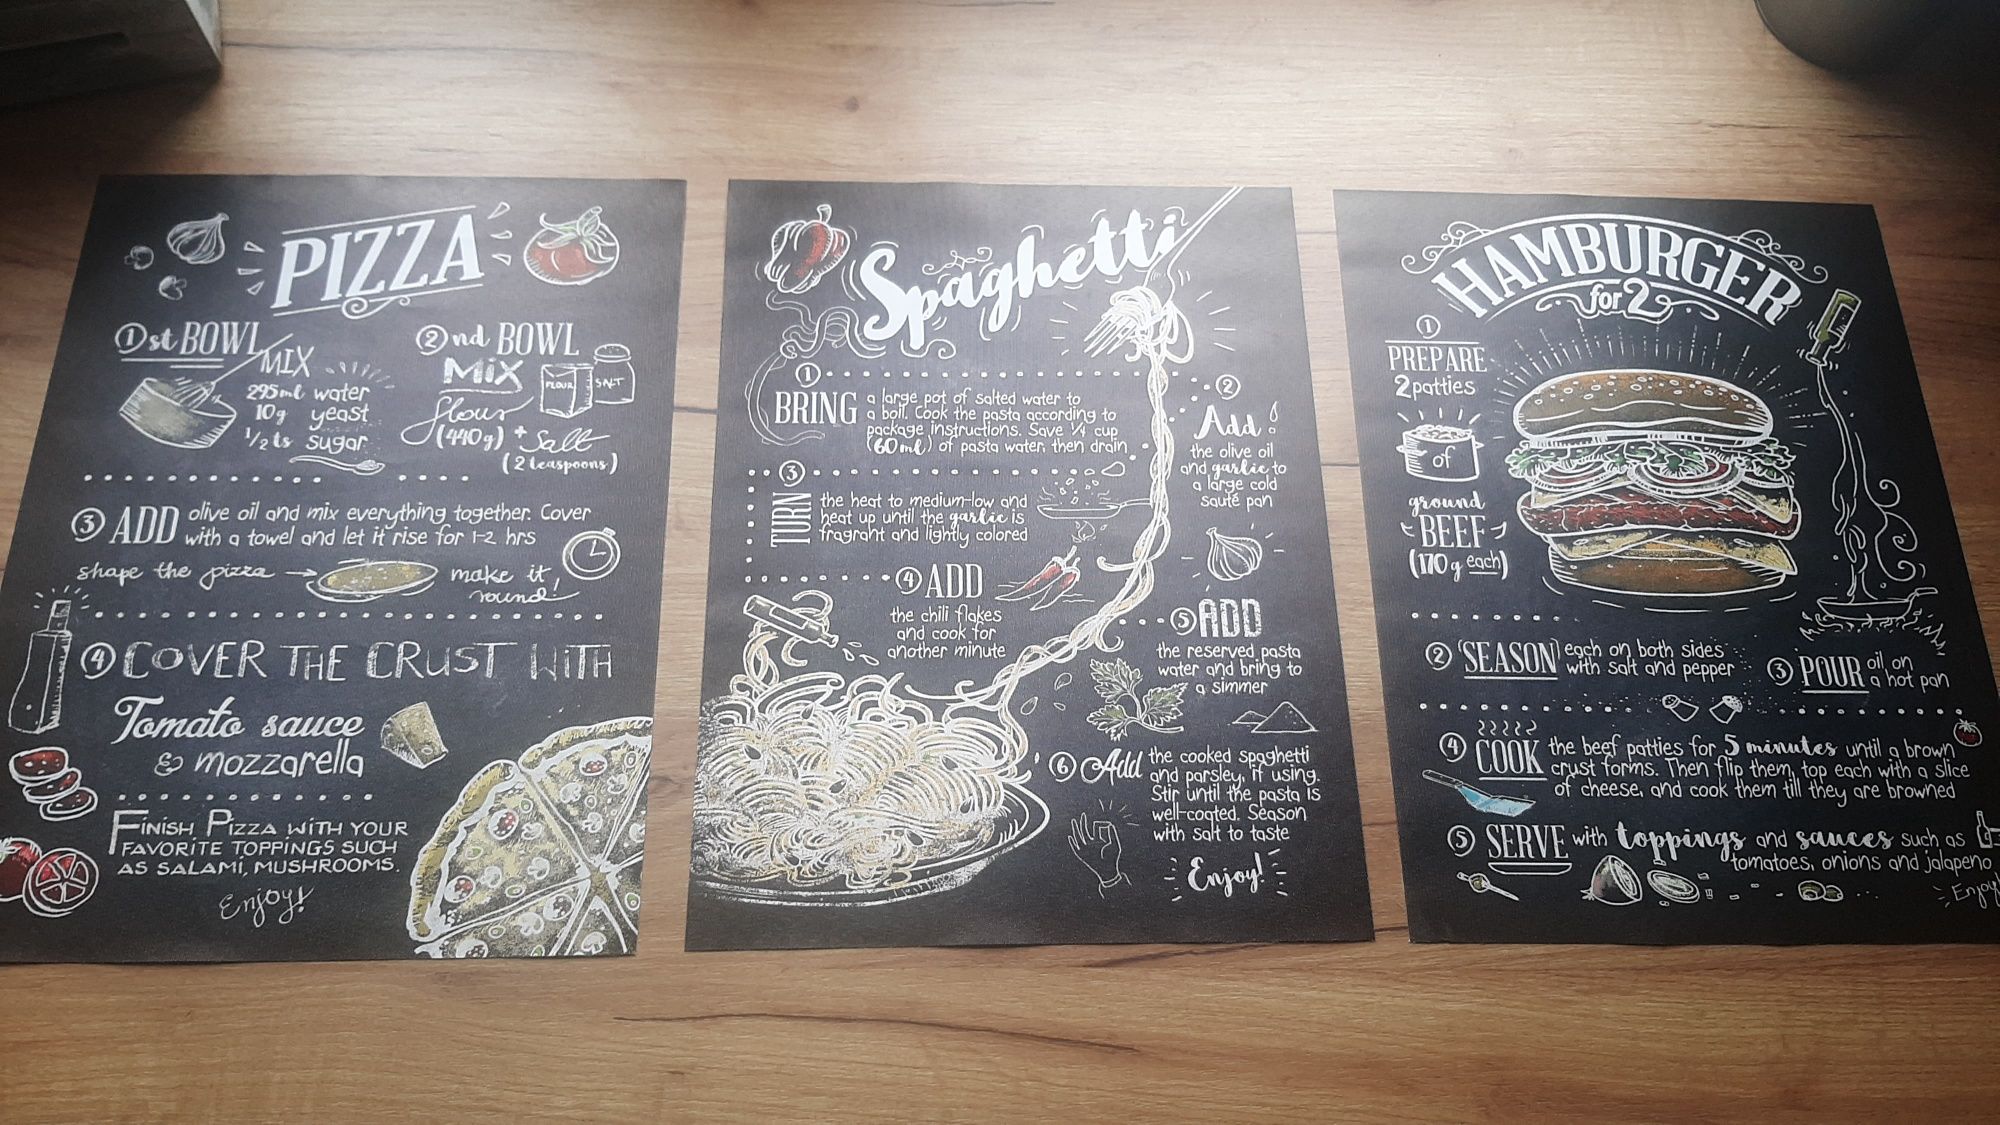 PIZZA
1st BOWL
MIX
295ml water
10g yeast
1/2 ts sugar
2nd BOWL
MIX
flour
(440g) +
Salt
(2 teaspoons)
FLOUR
SALT
3 ADD olive oil and mix everything together. Cover
with a towel and let it rise for 1-2 hrs
shape the pizza → make it
round!
4 COVER THE CRUST WITH
Tomato sauce
& mozzarella
FINISH PIZZA WITH YOUR
FAVORITE TOPPINGS SUCH
AS SALAMI, MUSHROOMS.
Enjoy!
Spaghetti
1
BRING a large pot of salted water to
a boil. Cook the pasta according to
package instructions. Save 1/4 cup
(60ml) of pasta water, then drain
2
Add
the olive oil
and garlic to
a large cold
sauté pan
3
TURN the heat to medium-low and
heat up until the garlic is
fragrant and lightly colored
4 ADD
the chili flakes
and cook for
another minute
5 ADD
the reserved pasta
water and bring to
a simmer
6 Add the cooked spaghetti
and parsley, if using.
Stir until the pasta is
well-coated. Season
with salt to taste
Enjoy!
HAMBURGER
for 2
1
PREPARE
2 patties
of
ground
BEEF
(170 g each)
2 SEASON each on both sides
with salt and pepper
3 POUR oil on
a hot pan
4 COOK the beef patties for 5 minutes until a brown
crust forms. Then flip them, top each with a slice
of cheese, and cook them till they are browned
5 SERVE with toppings and sauces such as
tomatoes, onions and jalapeno
Enjoy!